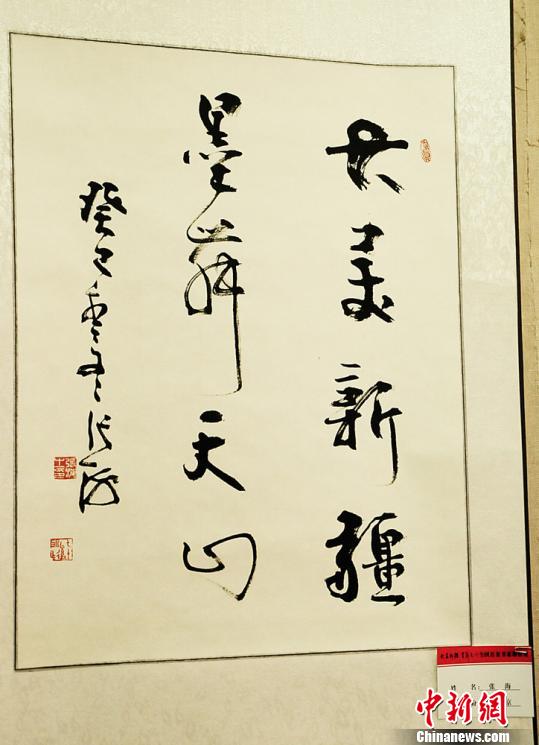 大美新疆
墨舞天山
癸巳 张海
姓 名: 张 海
京
中新网
Chinanews.com